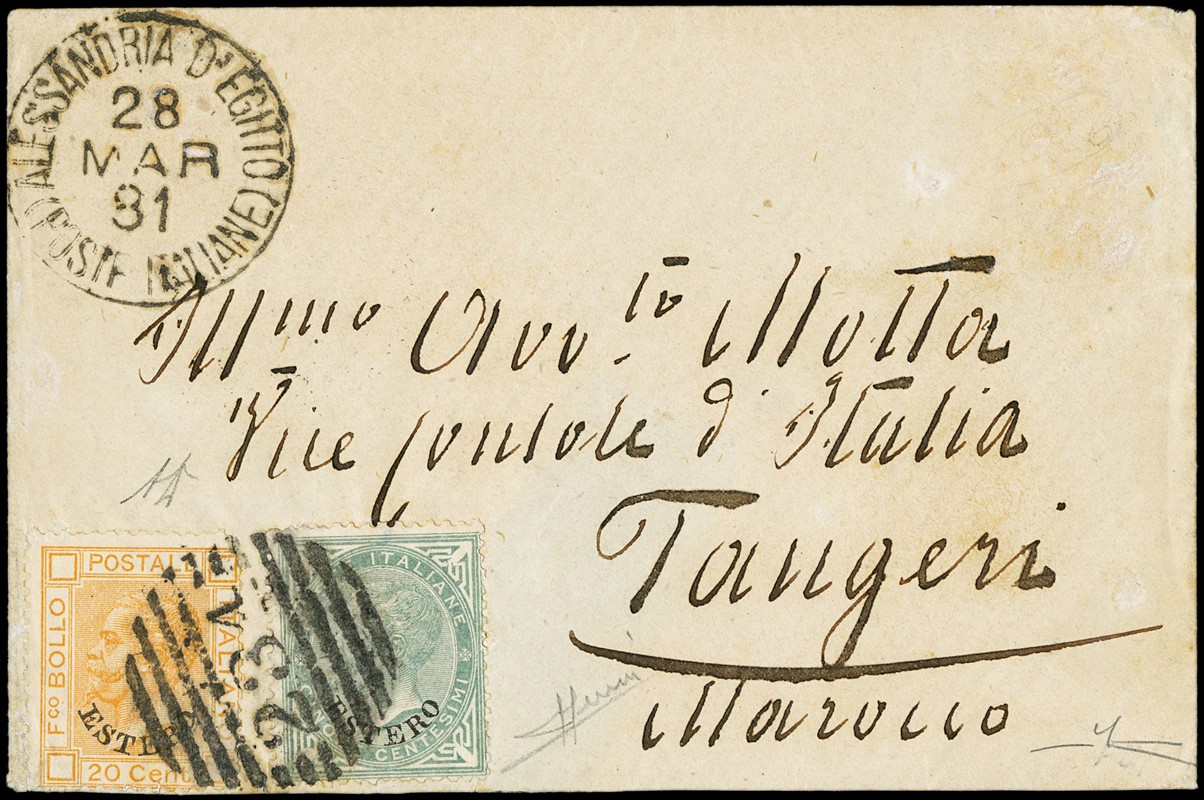 ALESSANDRIA D'EGITTO
28
MAR
81
(POSTE ITALIANE)
Ill.mo Avv.to Motta
Vice Console d'Italia
Tangeri
Marocco
POSTALE
ITALIA
Fco BOLLO
20 Cent
ESTERO
234
ITALIANE
CENTESIMI
ESTERO